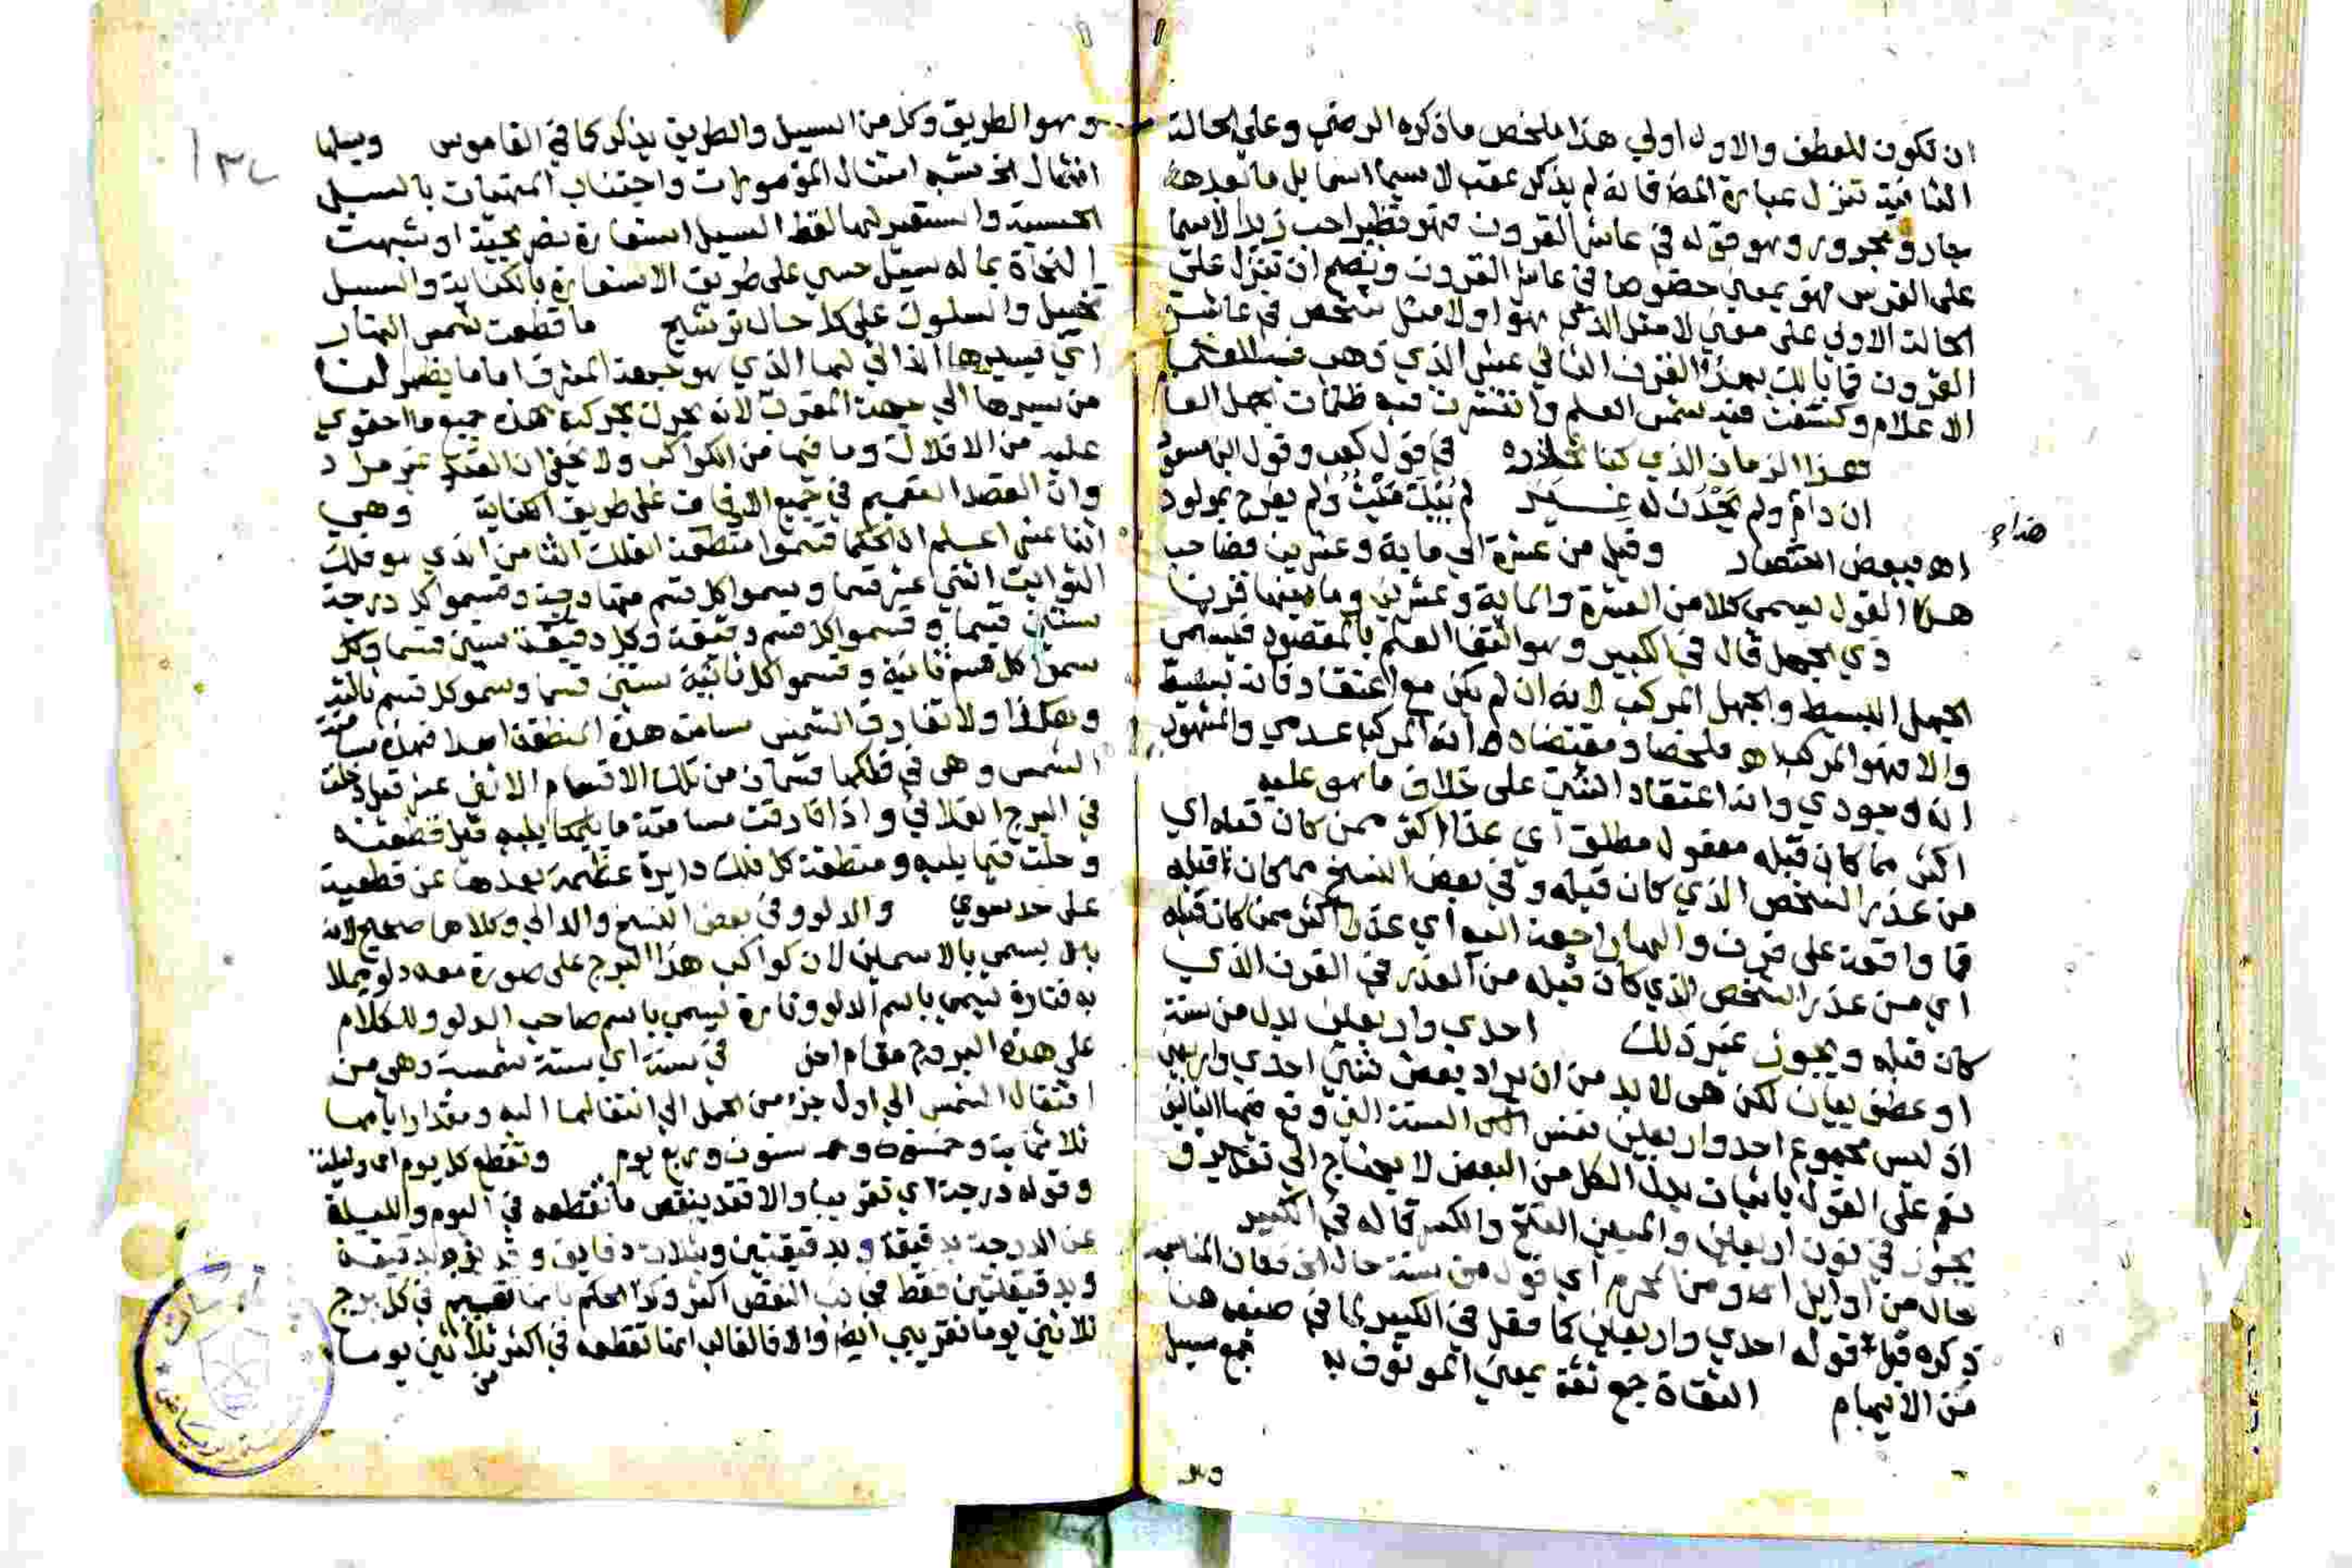 ان تكون للعطف والاول اولي هذا ملخص ماذكره الرضي وعلي الحالة
الثانية تنزل عبارة المص فانه لم يذكر عقب لاسيما اسما بل ما بعدها
جار ومجرور وهو قوله في عاشر القرون فهو نظير احب زيدا لاسيما
على الفرس فهو بمعني خصوصا في عاشر القرون ويصح ان تنزل على
الحالة الاولي على معني لا مثل الذي هو او لا مثل شخص في عاشر
القرون فما بالك بهذا القرن الثاني عشر الذي ذهب فيه العلما
الاعلام وكسفت فيه شمس العلم وانتشرت فيه ظلمات جهل العا
هذا الزمان الذي كنا نحاذره في قول كعب وقول ابن مسعود
ان دام ولم يحدث له غير لم يبك ميت ولم يفرح بمولود
اه ببعض اقتصاد وقيل من عشرة الي ماية وعشرين فصاحب
هذا القول يسمي كلا من العشرة والماية وعشرين وما بينهما قرنا
ذي الجهل قال في الكبير وهو انتفا العلم بالمقصود فيسمي
الجهل البسيط والجهل المركب لانه ان لم يكن مع اعتقاد فانه بسيط
والا فهو المركب اه ملخصا ومقتضاه ان المركب عدمي والمشهور
انه وجودي وانه اعتقاد الشي على خلاف ما هو عليه
اكثر مما كان قبله مفعول مطلق اي عذرا اكثر ممن كان قبله اي
من عذر الشخص الذي كان قبله وفي بعض النسخ مما كان قبله
فما واقعة على قرن والهاء راجعة اليه اي عذرا اكثر ممن كان قبله
اي من عذر الشخص الذي كان قبله من العذر في القرن الذي
كان قبله ويجوز غير ذلك احدي واربعين بدل من سنة
او عطف بيان لكن هي لا بد من ان يراد بعض شي احدي واربعين
اذ ليس مجموع احد واربعين نفس السنة التي وقع فيها التاليف
نعم على القول باثبات بدل الكل من البعض لا يحتاج الي تقدير و
يجوز في نون اربعين والميين الفتح والكسر قاله في الكبير
حال من اوايل اي ومن المحرم اي قول من سنة حال اخ فكان المناسب
ذكره قبل قوله احدي واربعين كما فعل في الكبير لما في صنيعه هنا
من الايهام الثقاة جمع ثقة بمعني الموثوق به جمع سبيل
وهو
هذا مح
وهو الطريق وكل من السبيل والطريق يذكر كما في القاموس وسبيلها
امتثال الخ شبه امتثال المامورات واجتناب المنهيات بالسبيل
الحسية واستعير لهما لفظ السبيل استعارة تصريحية او شبهت
النجاة بما له سبيل حسي على طريق الاستعارة بالكناية والسبيل
تخييل والسلوك على كل حال ترشيح ما قطعت شمس النهار
اي بسيرها الذاتي لها الذي هو جهة المشرق اما ما يظهر لنا
من سيرها الي جهة المغرب لانه بحركة هذه جميع ما احتوي
عليه من الافلاك وما فيها من الكواكب ولا يخفي ان القيد غير مراد
وان القصد التعميم في جميع الاوقات على طريق الكناية وهي
اثنا عشر اعلم ان الحكما قسموا منطقة الفلك الثامن الذي هو فلك
الثوابت اثني عشر قسما وسموا كل قسم منها درجة وقسموا كل درجة
ستين قسما وسموا كل قسم دقيقة وكل دقيقة ستين قسما وكل
سموا كل قسم ثانية وقسموا كل ثانية ستين قسما وسموا كل قسم ثالثة
وهكذا ولا تفارق الشمس مسامتة هذه المنطقة ابدا فهذه مسامتة
الشمس وهي في فلكها قسما من تلك الاقسام الاثني عشر قيل دخلت
في البرج الفلاني واذا فارقت مسامتة ما يليه قيل قطعته
وحلت فيما يليه ومنطقة كل فلك دايرة عظيمة بعدها عن قطبيه
على حد سوي والدلو وفي بعض النسخ والدالي وكلاهما صحيح لانه
يسمي بالاسمين لان كواكب هذا البرج على صورة معه دلو يملا
به فتارة يسمي باسم الدلو وتارة يسمي باسم صاحب الدلو وللكلام
على هذه البروج مقام اخر في سنة اي سنة شمسية وهي من
انتقال الشمس الي اول جزء من الحمل الي انتقالها اليه ومقدار ايامها
ثلاثماية وخمسة وستون وربع يوم وتقطع كل يوم اي وليلة
وقوله درجة اي تقريبا والا فقد ينقص ما تقطعه في اليوم والليلة
عن الدرجة بدقيقة وبدقيقتين وبثلاث دقايق وقد يزيد بدقيقة
وبدقيقتين فقط فجانب النقص اكثر وكذا الحكم بانها تقيم في كل برج
ثلاثين يوما تقريبي ايضا والا فالغالب انها تقطعه في اكثر من ثلاثين يوما